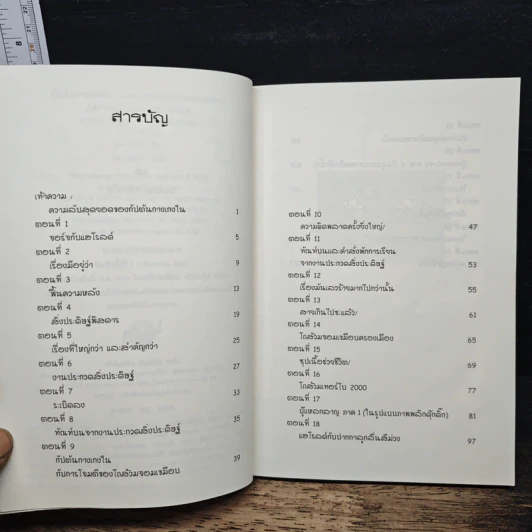 สารบัญ
เท้าความ :
ความลับสุดยอดของกัปตันกางเกงใน 1
ตอนที่ 1
จอร์จกับแฮโรลด์ 5
ตอนที่ 2
เรื่องมีอยู่ว่า 9
ตอนที่ 3
ฟื้นความหลัง 13
ตอนที่ 4
สิ่งประดิษฐ์พิสดาร 19
ตอนที่ 5
เรื่องที่ใหญ่กว่า และสำคัญกว่า 25
ตอนที่ 6
งานประกวดสิ่งประดิษฐ์ 27
ตอนที่ 7
ระเบิดลง 33
ตอนที่ 8
ทัณฑ์บนจากงานประกวดสิ่งประดิษฐ์ 35
ตอนที่ 9
กัปตันกางเกงใน
กับการโจมตีของโถส้วมจอมเขมือบ 39
ตอนที่ 10
ความผิดพลาดครั้งยิ่งใหญ่! 47
ตอนที่ 11
ทัณฑ์บนและคำสั่งพักการเรียน
จากงานประกวดสิ่งประดิษฐ์ 53
ตอนที่ 12
เรื่องมันเลวร้ายมากไปกว่านั้น 55
ตอนที่ 13
สายเกินไปซะแล้ว! 61
ตอนที่ 14
โถส้วมจอมเขมือบครองเมือง 65
ตอนที่ 15
ซุปเนื้อช่วยชีวิต! 69
ตอนที่ 16
โถส้วมเทอร์โบ 2000 77
ตอนที่ 17
ผู้แหลกลาญ ภาค 1 (ในรูปแบบภาพพลิกดุ๊กดิ๊ก) 81
ตอนที่ 18
แฮโรลด์กับปากกาลูกลื่นสีม่วง 97
8
22
21